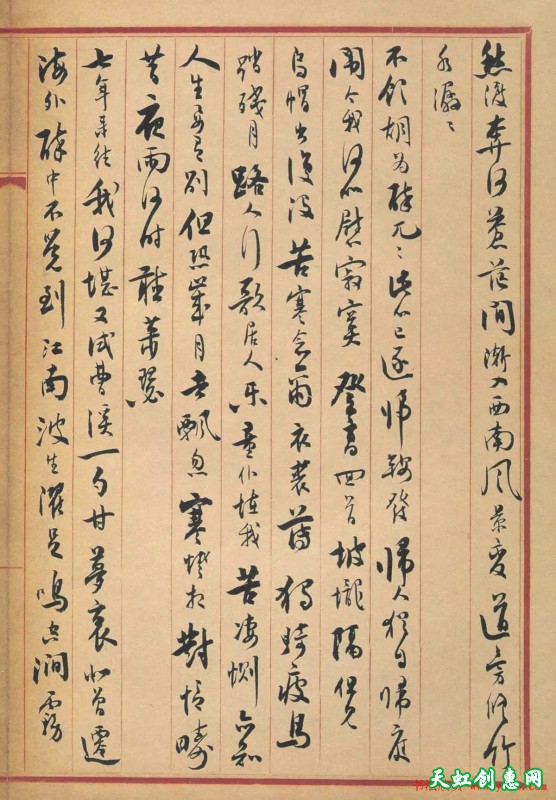 然渡奔河蒼茫間漸入西南風景变道旁修竹
水潺〻
不飲胡為醉兀〻此心已逐歸鞍發歸人猶自歸庭
闈今我何以慰寂寞登高回首坡壠隔但見
烏帽出復没苦寒念爾衣裘薄獨騎瘦馬
踏殘月路人行歌居人樂童僕怪我苦凄惻亦知
人生要有別但恐歲月去飄忽寒燈相對憶疇
昔夜雨何時聽蕭瑟
七年來往我何堪又試曹溪一勺甘夢裏似曾遷
海外醉中不覺到江南波生濯足鳴空澗霧
天虹创惠网